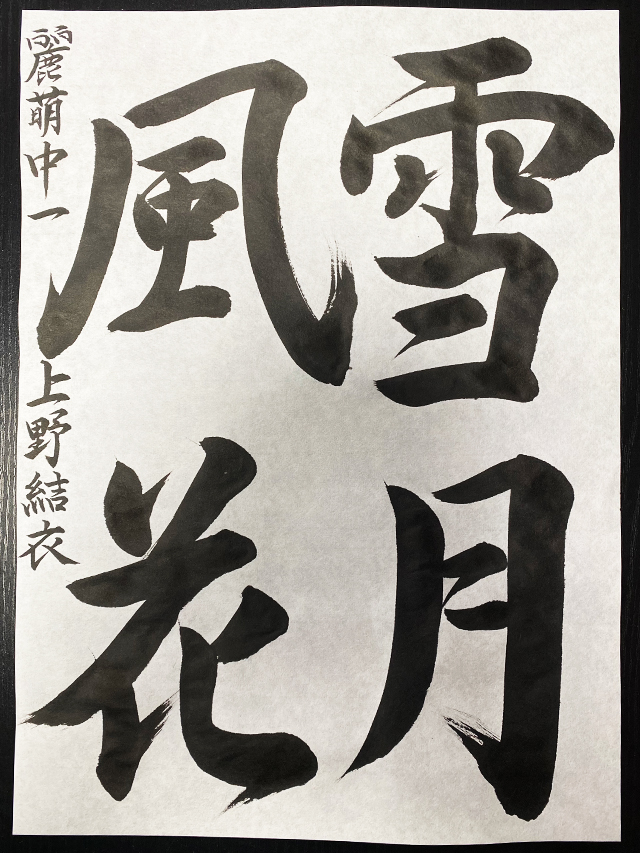 雪月
風花
麗萌中一 上野結衣